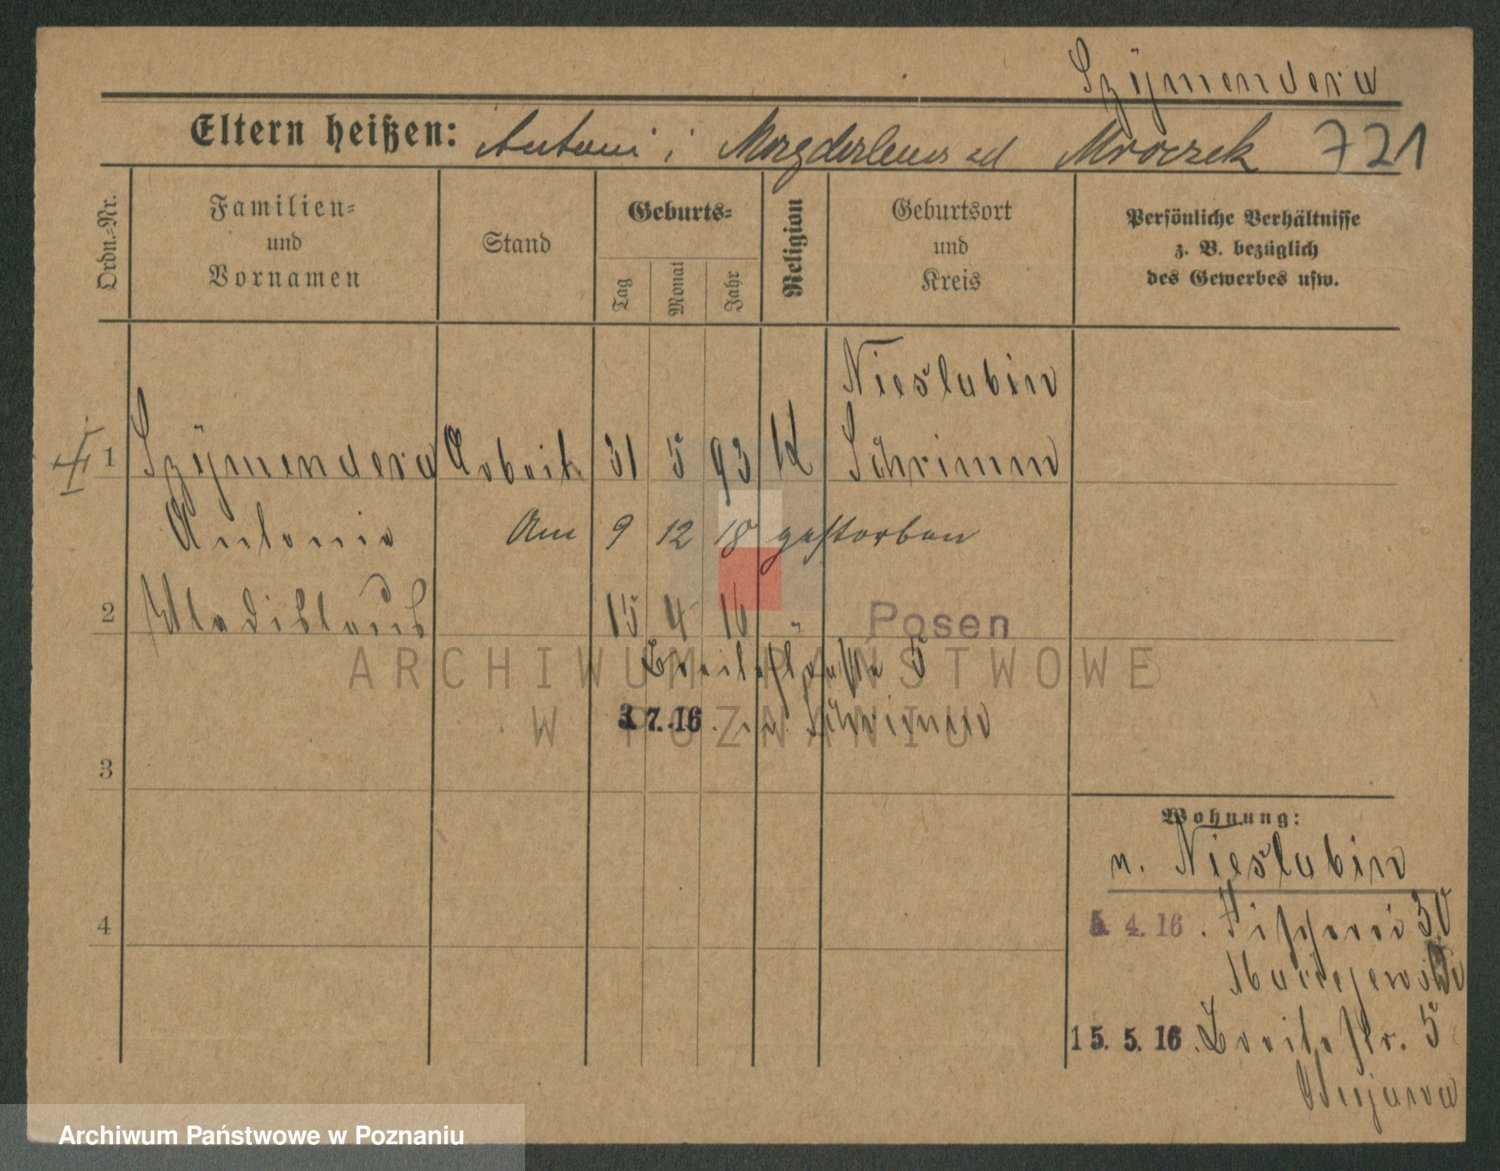 Szÿmendera
Eltern heißen: Antoni i Magdalena zd Mroczek 721
Ordn.-Nr.
Familien-
und
Vornamen
Stand
Geburts-
Tag
Monat
Jahr
Religion
Geburtsort
und
Kreis
Persönliche Verhältnisse
z. B. bezüglich
des Gewerbes usw.
Nieslabin
1 Szÿmendera Arbeit. 31 5 93 K Schrimm
Antonie Am 9 12 18 gestorben
2 Wladislaus 15 4 16 " Posen
Breitestraße 5
3.7.16 n. Schrimm
3
Wohnung:
n. Nieslabin
4
5. 4. 16 . Fischerei 30
Maciejewski
15. 5. 16 . Breitestr. 5
Bujawa
ARCHIWUM PAŃSTWOWE
W POZNANIU
Archiwum Państwowe w Poznaniu